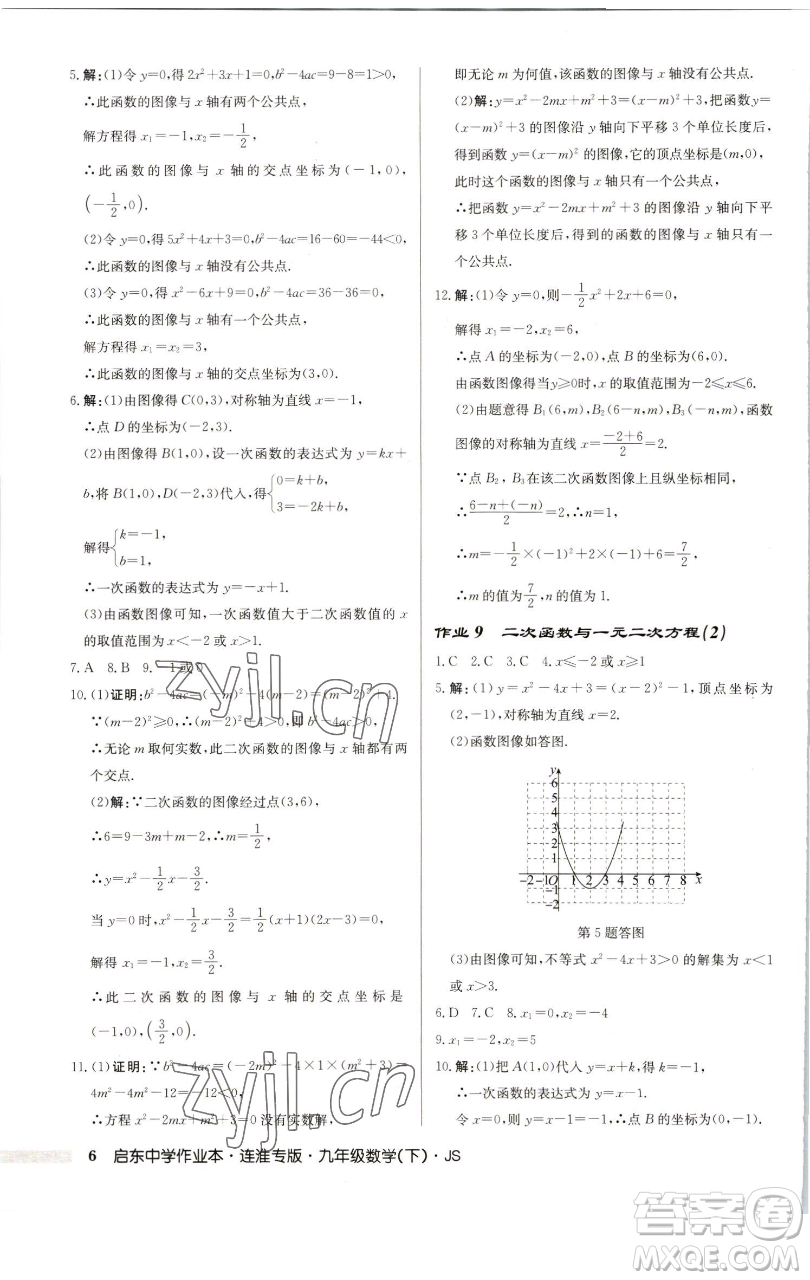 5.解:(1)令 y=0,得 2x²+3x+1=0,b²-4ac=9-8=1>0,
∴此函数的图像与 x 轴有两个公共点,
解方程得 x₁=-1,x₂=-1/2,
∴此函数的图像与 x 轴的交点坐标为(-1,0),
(-1/2,0).
(2)令 y=0,得 5x²+4x+3=0,b²-4ac=16-60=-44<0,
∴此函数的图像与 x 轴没有公共点.
(3)令 y=0,得 x²-6x+9=0,b²-4ac=36-36=0,
∴此函数的图像与 x 轴有一个公共点,
解方程得 x₁=x₂=3,
∴此函数的图像与 x 轴的交点坐标为(3,0).
6.解:(1)由图像得 C(0,3),对称轴为直线 x=-1,
∴点 D 的坐标为(-2,3).
(2)由图像得 B(1,0),设一次函数的表达式为 y=kx+
b,将 B(1,0),D(-2,3)代入,得{0=k+b, 3=-2k+b,
解得{k=-1, b=1,
∴一次函数的表达式为 y=-x+1.
(3)由函数图像可知,一次函数值大于二次函数值的 x
的取值范围为 x<-2 或 x>1.
7.A 8.B 9. 1或
10.(1)证明:b²-4ac=(-m)²-4(m-2)=(m-2)²+4.
∵(m-2)²≥0,∴(m-2)²+4>0,即 b²-4ac>0,
∴无论 m 取何实数,此二次函数的图像与 x 轴都有两
个交点.
(2)解:∵二次函数的图像经过点(3,6),
∴6=9-3m+m-2,∴m=1/2,
∴y=x²-1/2x-3/2.
当 y=0 时,x²-1/2x-3/2=1/2(x+1)(2x-3)=0,
解得 x₁=-1,x₂=3/2,
∴此二次函数的图像与 x 轴的交点坐标是
(-1,0),(3/2,0).
11.(1)证明:∵b²-4ac=(-2m)²-4×1×(m²+3)=
4m²-4m²-12=-12<0,
∴方程 x²-2mx+m²+3=0 没有实数解,
即无论 m 为何值,该函数的图像与 x 轴没有公共点.
(2)解:y=x²-2mx+m²+3=(x-m)²+3,把函数y=
(x-m)²+3 的图像沿 y 轴向下平移 3 个单位长度后,
得到函数 y=(x-m)² 的图像,它的顶点坐标是(m,0),
此时这个函数的图像与 x 轴只有一个公共点,
∴把函数 y=x²-2mx+m²+3 的图像沿 y 轴向下平
移 3 个单位长度后,得到的函数的图像与 x 轴只有一
个公共点.
12.解:(1)令 y=0,则-1/2x²+2x+6=0,
解得 x₁=-2,x₂=6,
∴点 A 的坐标为(-2,0),点 B 的坐标为(6,0).
由函数图像得当 y≥0时,x 的取值范围为-2≤x≤6.
(2)由题意得 B₁(6,m),B₂(6-n,m),B₃(-n,m),函数
图像的对称轴为直线 x=(-2+6)/2=2.
∵点 B₂,B₃在该二次函数图像上且纵坐标相同,
∴(6-n+(-n))/2=2,∴n=1,
∴m=-1/2×(-1)²+2×(-1)+6=7/2,
∴m 的值为7/2,n 的值为 1.
作业 9 二次函数与一元二次方程(2)
1.C 2.C 3.C 4.x≤-2 或 x≥1
5.解:(1)y=x²-4x+3=(x-2)²-1,顶点坐标为
(2,-1),对称轴为直线 x=2.
(2)函数图像如答图.
y
6
5
4
3
2
1
-2 -1 O 1 2 3 4 5 6 7 8 x
-1
-2
第 5 题答图
(3)由图像可知,不等式 x²-4x+3>0 的解集为 x<1
或 x>3.
6.D 7.C 8.x₁=0,x₂=-4
9.x₁=-2,x₂=5
10.解:(1)把 A(1,0)代入 y=x+k,得 k=-1,
∴一次函数的表达式为 y=x-1.
令 x=0,得 y=-1,∴点 B 的坐标为(0,-1).
6 启东中学作业本·连淮专版·九年级数学(下)·JS
zyjl.cn
zyjl.cn
答案圈
MXQE.COM